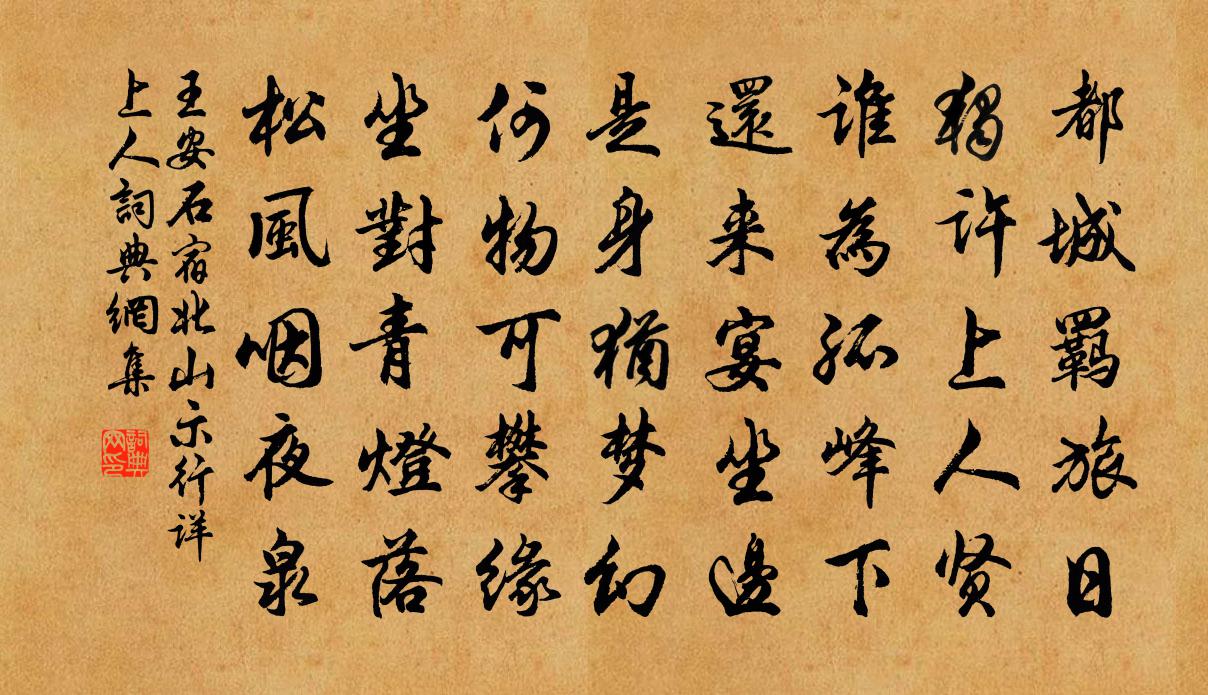 都城羈旅日
獨許上人贤
誰為孤峰下
還来宴坐邊
是身猶梦幻
何物可攀緣
坐對青燈落
松風咽夜泉
王安石宿北山示行詳
上人詞典網集
詞典網印